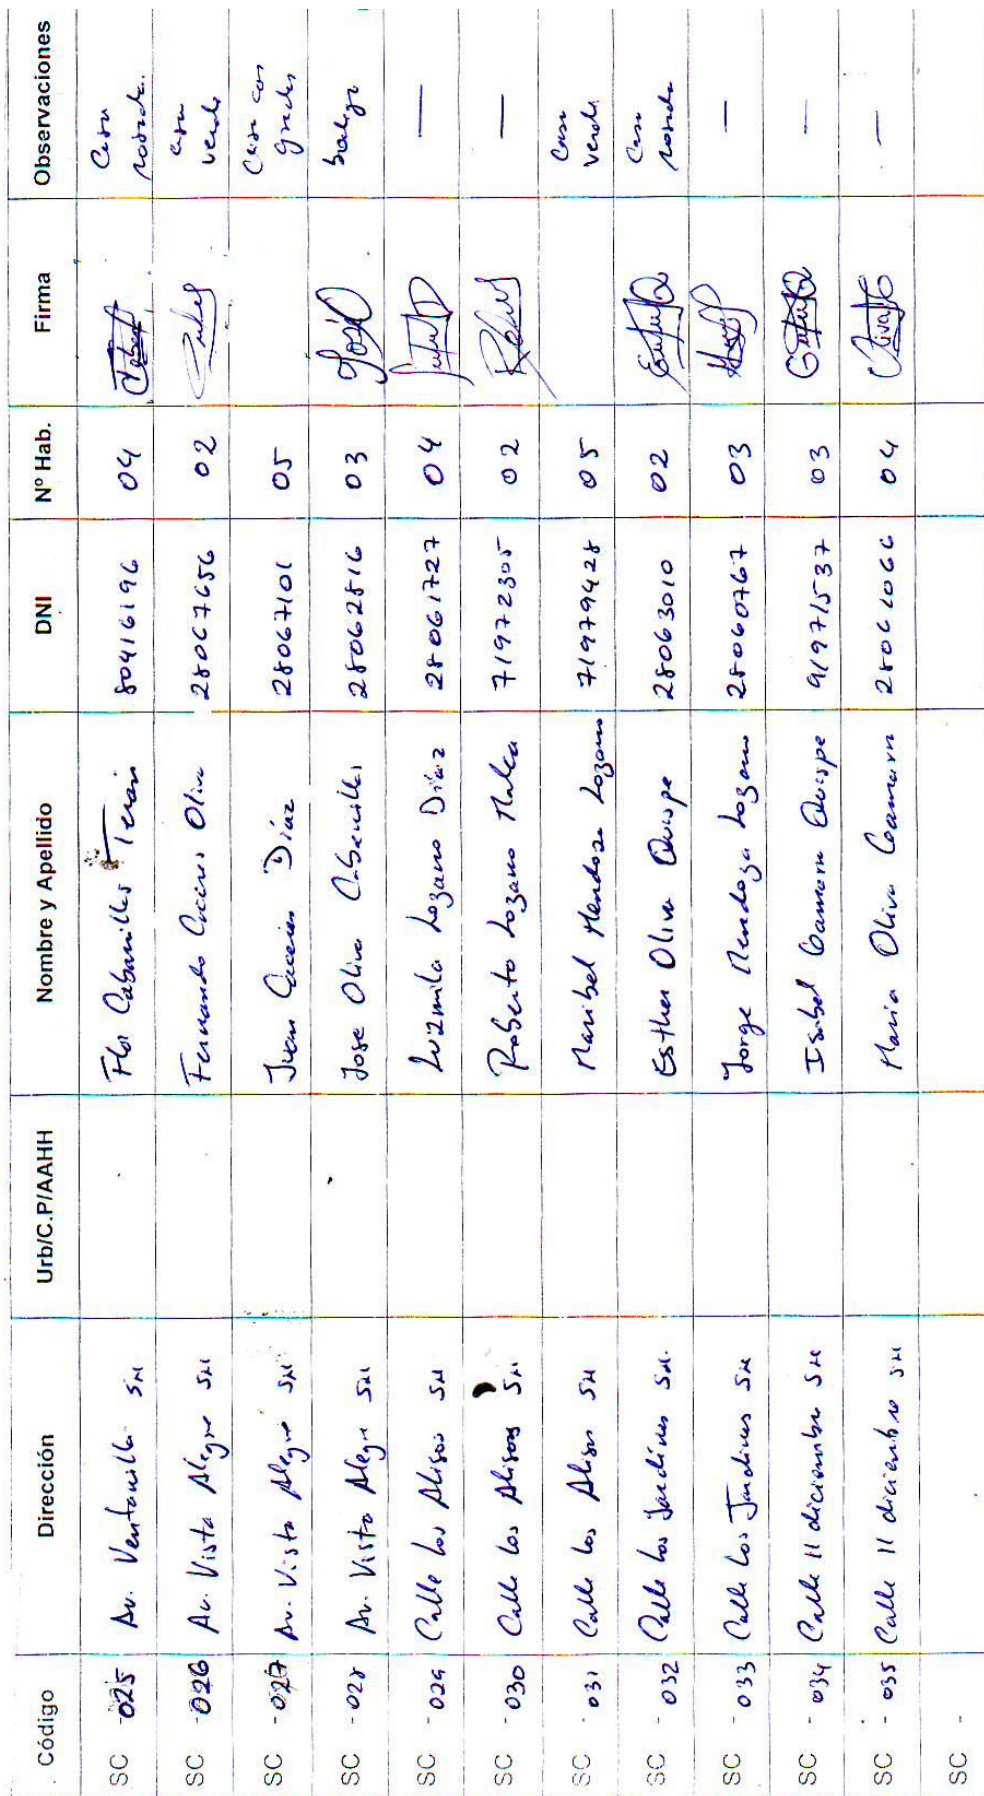 Código Dirección Urb/C.P/AAHH Nombre y Apellido DNI Nº Hab. Firma Observaciones
SC - 025 Av. Ventanilla SN Flor Cabanillas Terán 80416196 04 Casa rosada.
SC - 026 Av. Vista Alegre SN Fernando Oliva 28067656 02 casa verde
SC - 027 Av. Vista Alegre SN Juan Díaz 28067101 05 Casa con gradas
SC - 028 Av. Vista Alegre SN Jose Oliva Cabanillas 28062816 03 José bodega
SC - 029 Calle Los Alisos SN Luzmila Lozano Díaz 28061727 04 —
SC - 030 Calle Los Alisos SN Roberto Lozano Malca 71972305 02 —
SC - 031 Calle Los Alisos SN Maribel Mendoza Lozano 71979428 05 Casa verde
SC - 032 Calle Los Jardines SN. Esther Oliva Quispe 28063010 02 Casa rosada
SC - 033 Calle Los Jardines SN Jorge Mendoza Lozano 28060767 03 —
SC - 034 Calle 11 diciembre SN Isabel Quispe 91971537 03 —
SC - 035 Calle 11 diciembre SN Maria Oliva 28061066 04 —
SC -